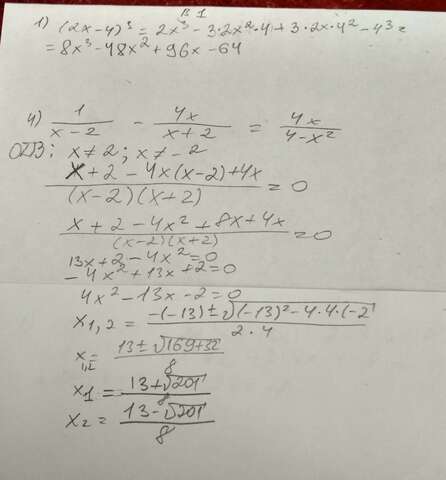 В 1
1) (2x-4)³ = 2x³ - 3·2x²·4 + 3·2x·4² - 4³ =
= 8x³ - 48x² + 96x - 64
4) 1/(x-2) - 4x/(x+2) = 4x/(4-x²)
ОДЗ: x≠2; x≠-2
(x+2-4x(x-2)+4x)/((x-2)(x+2)) = 0
(x+2-4x²+8x+4x)/((x-2)(x+2)) = 0
13x+2-4x²=0
-4x²+13x+2=0
4x²-13x-2=0
x₁,₂ = (-(-13)±√((-13)²-4·4·(-2))/(2·4)
x₁,₂ = (13±√(169+32))/8
x₁ = (13+√201)/8
x₂ = (13-√201)/8